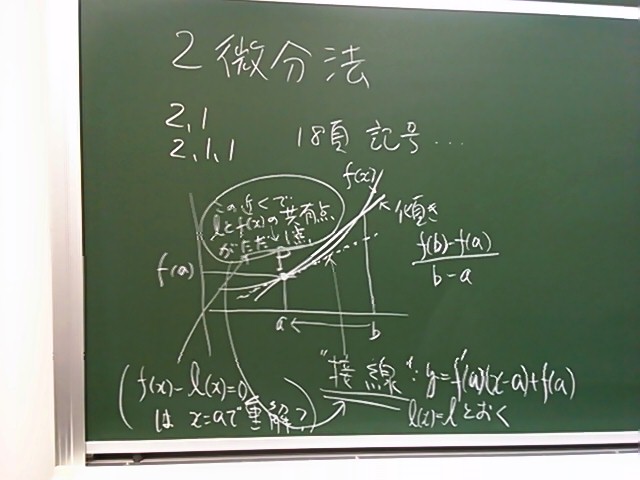 2 微分法
2.1
2.1.1 18頁 記号…
f(x)
この近くで、
lとf(x)の共有点
がただ1点
傾き
f(b)-f(a)
b-a
P
f(a)
a ← b
"接線": y=f'(a)(x-a)+f(a)
l(x)=lとおく
(f(x)-l(x)=0
は x=aで重解?)